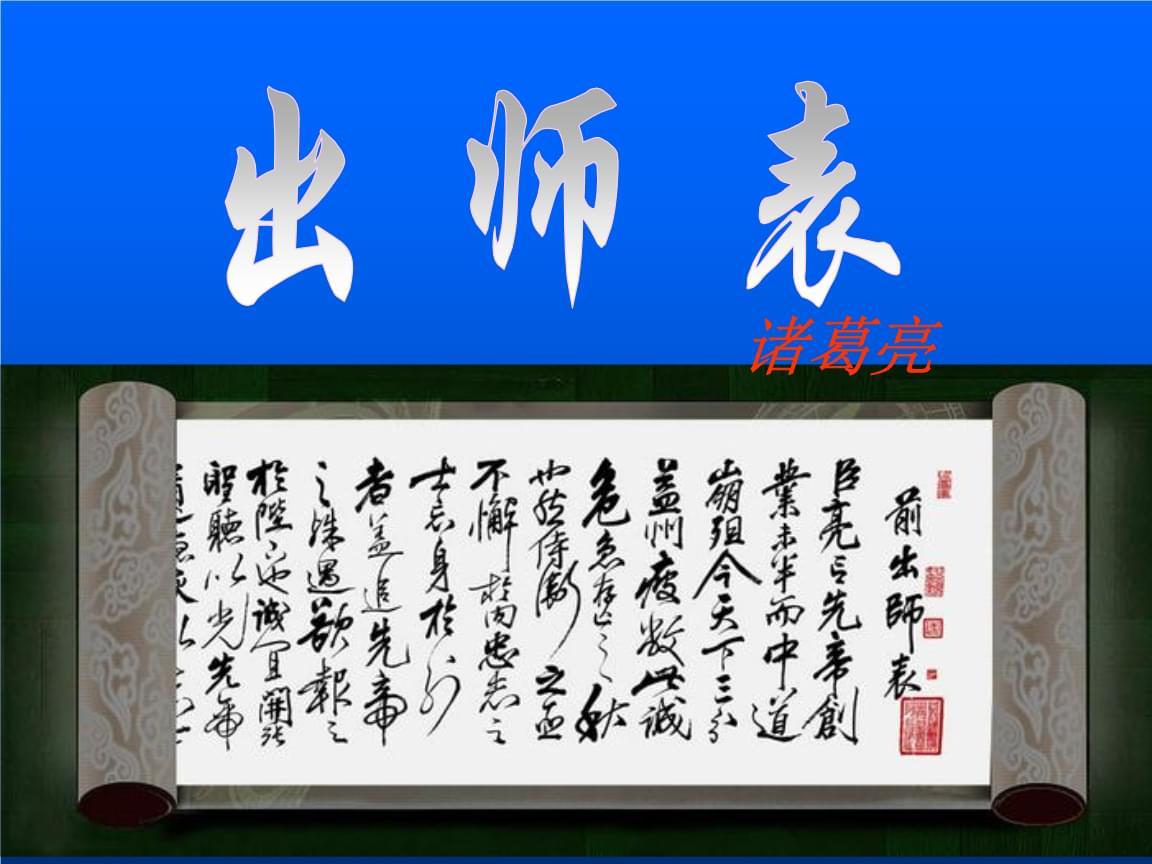 出师表
诸葛亮
前出師表
臣亮言先帝創
業未半而中道
崩殂今天下三分
益州疲敝此誠
危急存亡之秋
也然侍衛之臣
不懈於内忠志之
士忘身於外
者蓋追先帝
之殊遇欲報之
於陛下也誠宜開張
聖聽以光先帝